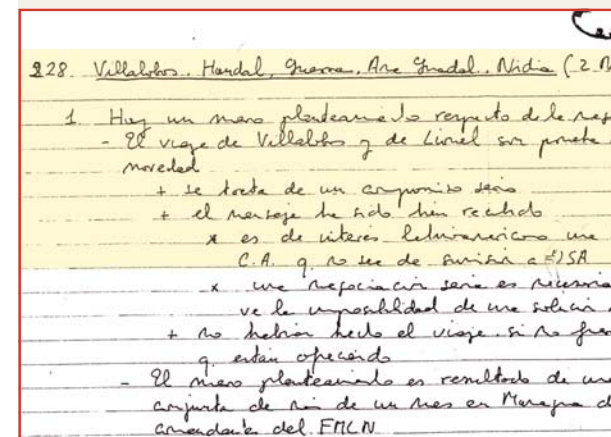 228. Villalobos. Handal, Guerra, Ana Guadal. Nidia (2 M
1. Hay un nuevo planteamiento respecto de la neg
- El viaje de Villalobos y de Lionel son prueba
novedad
+ se trata de un compromiso serio
+ el mensaje ha sido bien recibido
* es de interés latinoamericano una
C.A. q no sea de sumisión a USA
* una negociación seria es necesaria
ve la imposibilidad de una solución
+ no habrían hecho el viaje. si no fuera
q. están ofreciendo
- El nuevo planteamiento es resultado de una
conjunta de más de un mes en Managua d
comandancia del FMLN